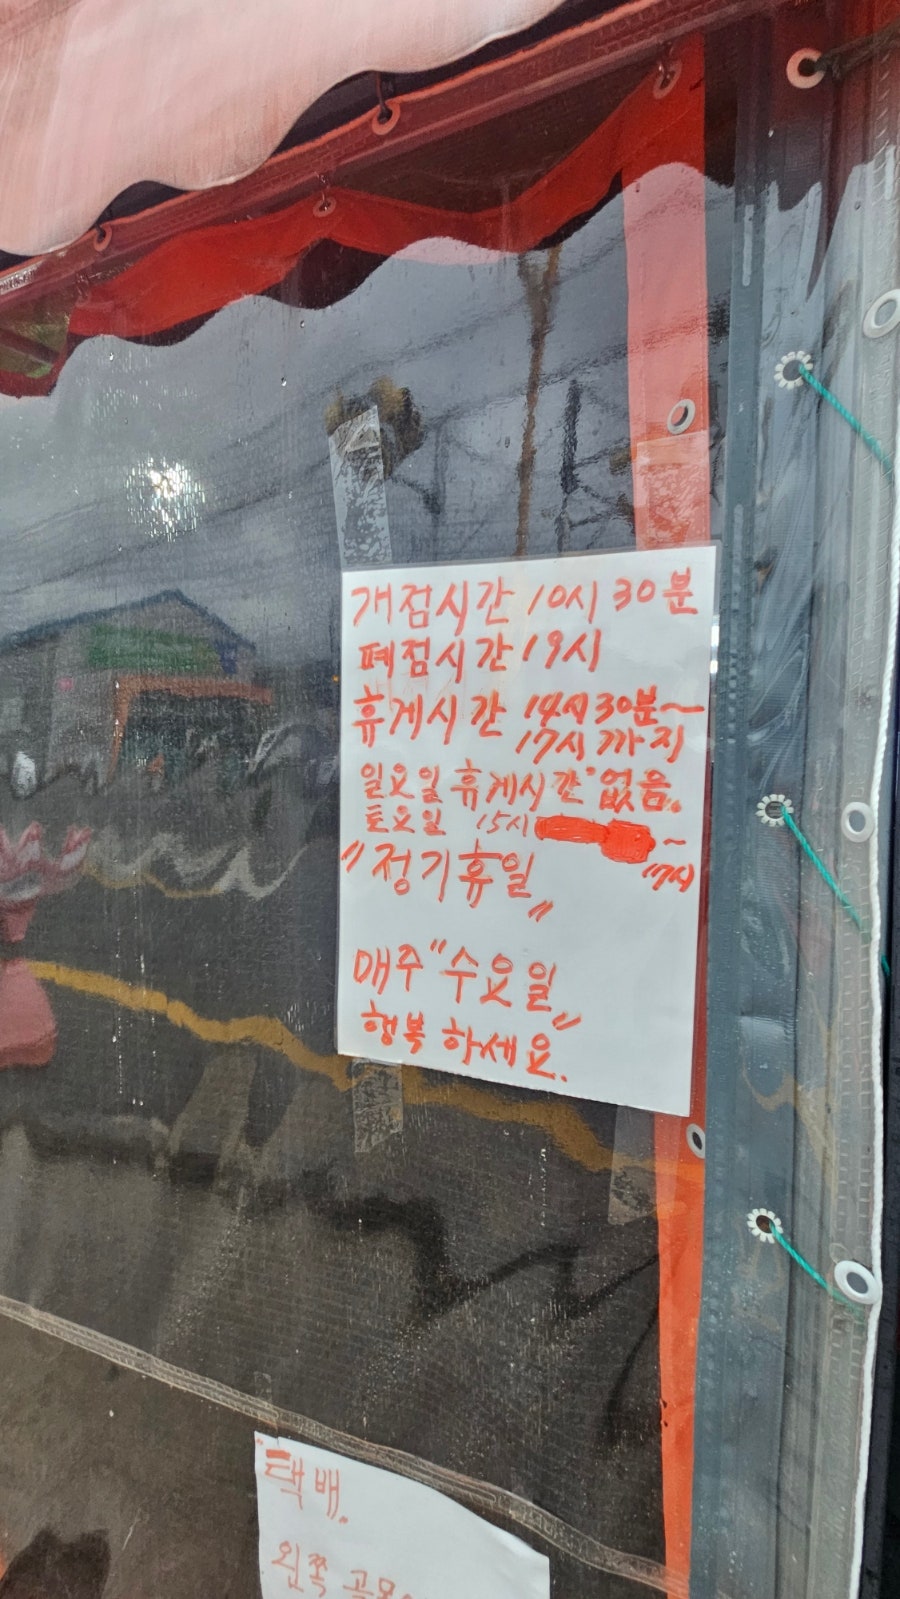 개점시간 10시 30분
폐점시간 19시
휴게시간 14시30분~
17시 까지
일요일 휴게시간 "없음"
토요일 15시 ~
17시
"정기휴일"
매주 "수요일"
행복 하세요.
택배.
왼쪽